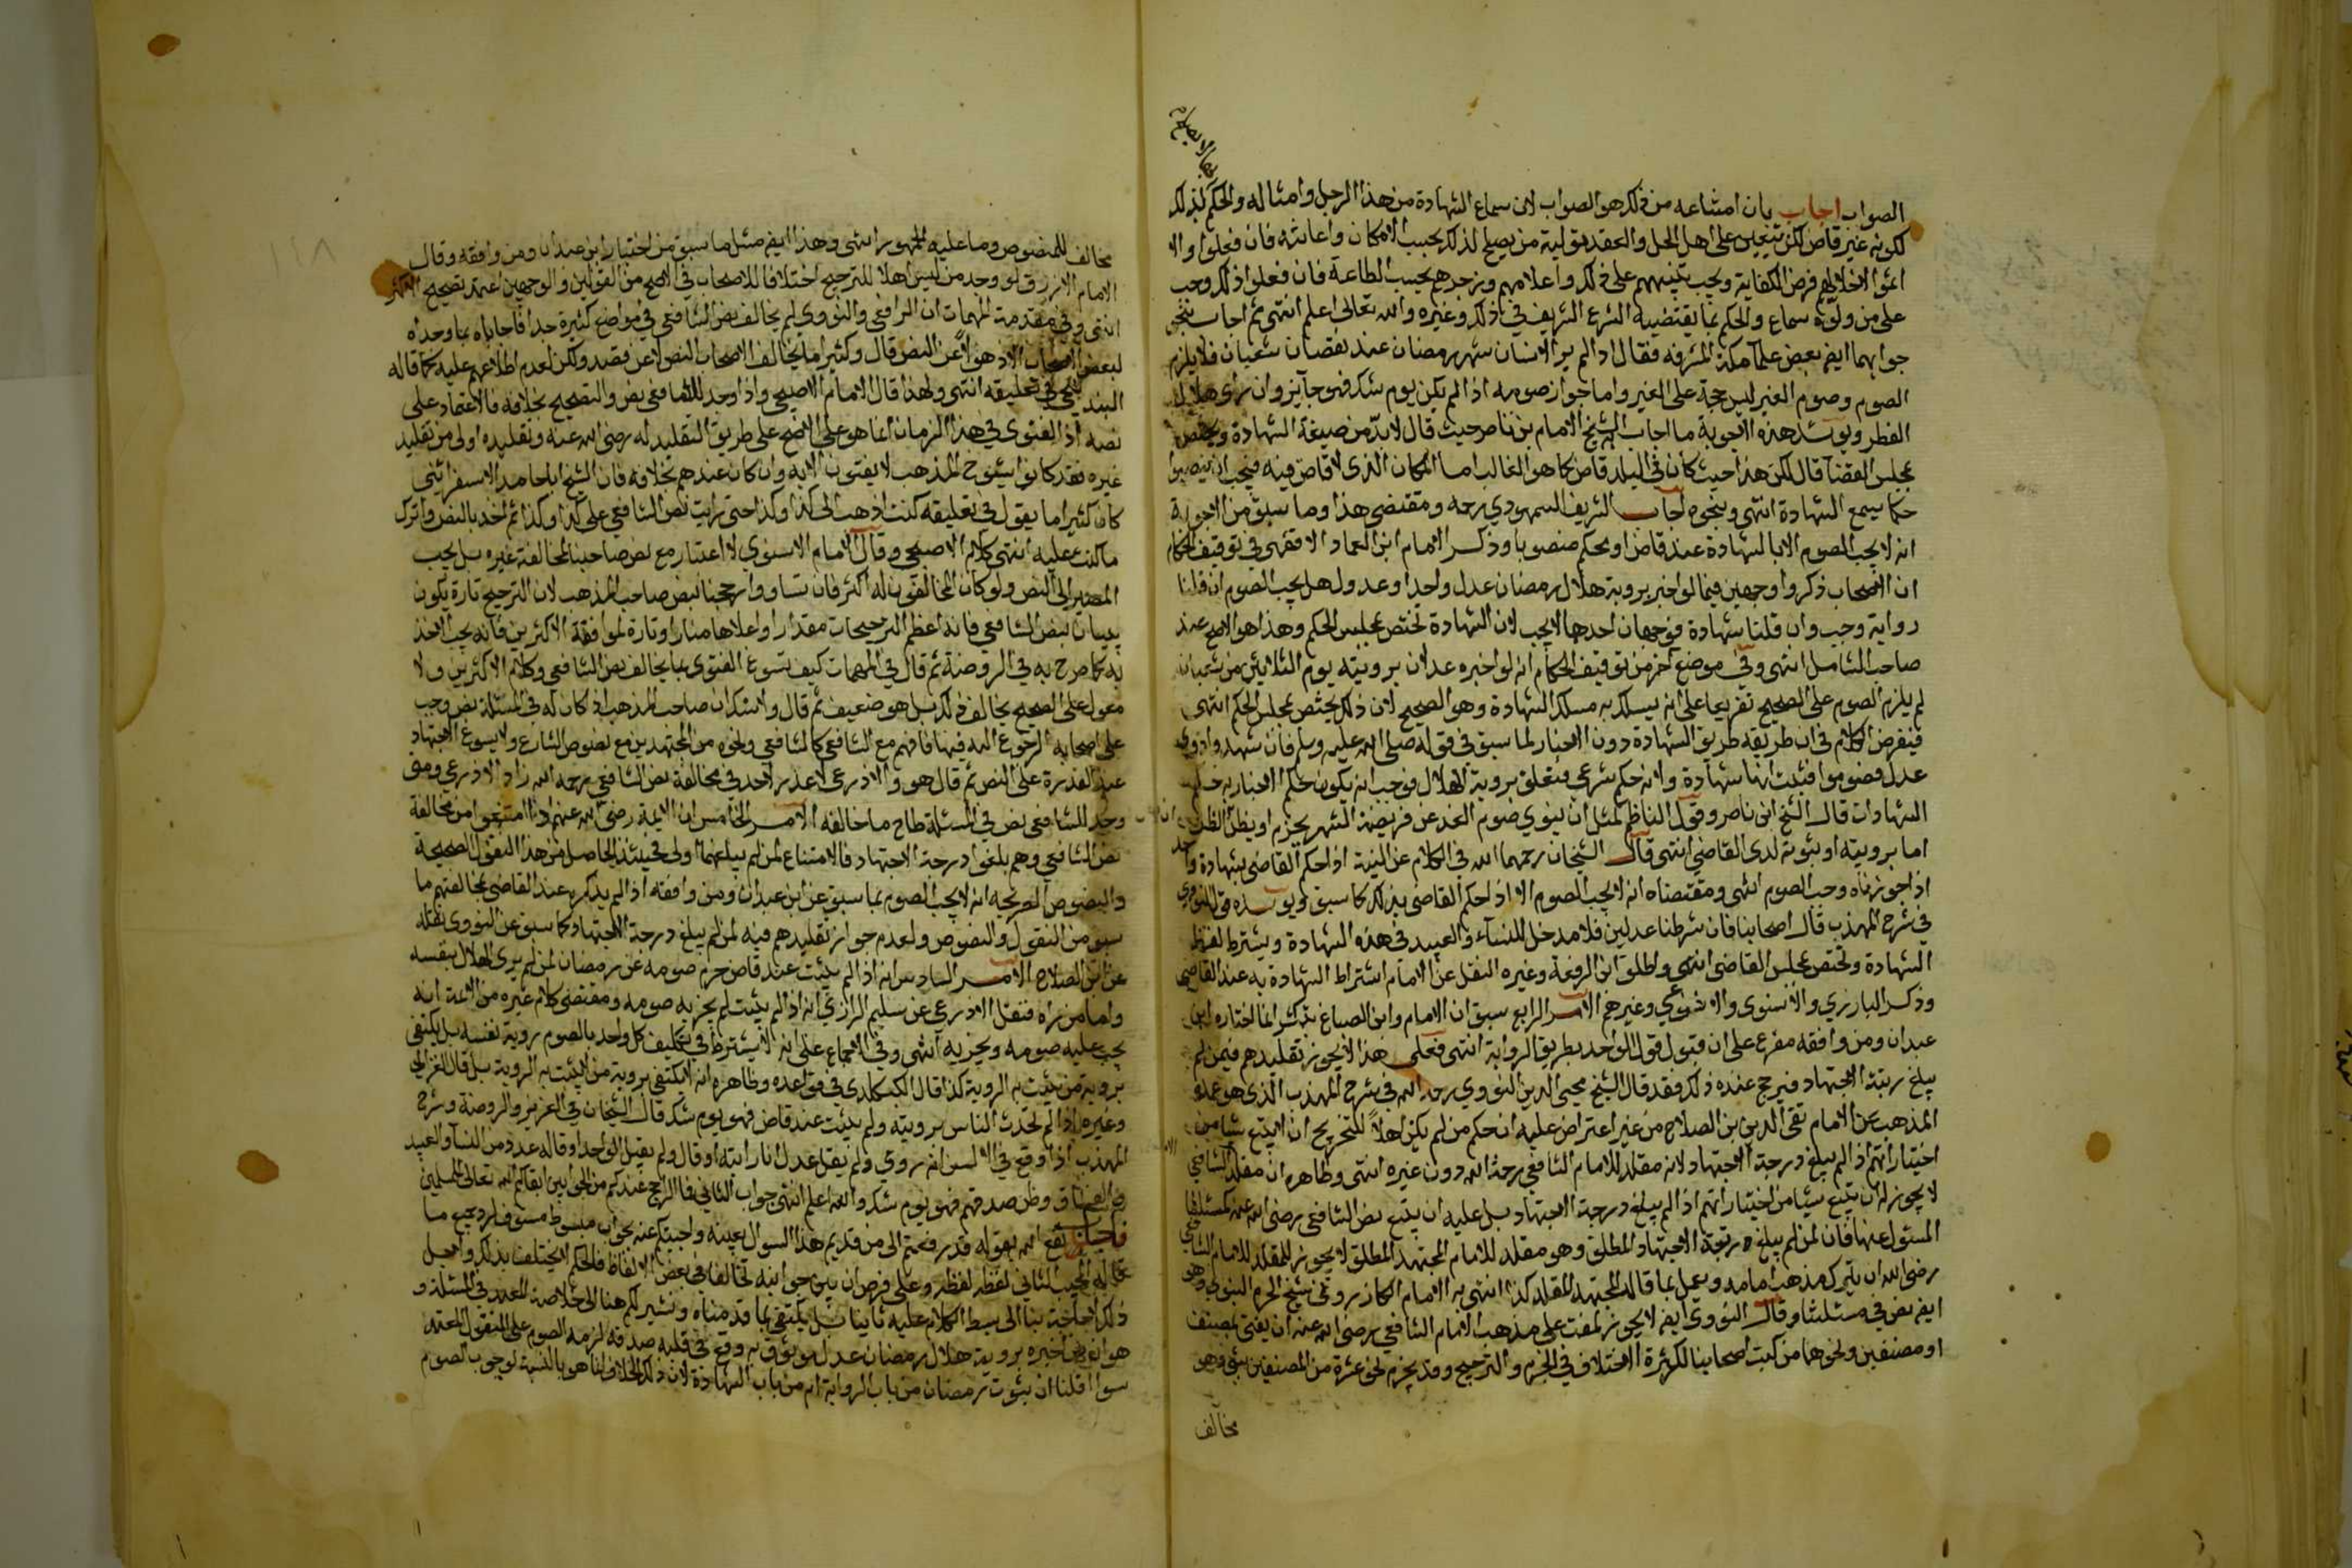 الصواب اجاب بان امتناعه من ذلك هو الصواب لان سماع الشهادة من هذا الرجل وامثاله والحكم بذلك
لكونه غير قاض لكن يتعين على اهل الحل والعقد تولية من يصلح لذلك بحسب الامكان واعانته فان فعلوا والا
اثموا لاخلالهم فرض الكفاية ويجب تنبيههم على ذلك واعلامهم وزجرهم بحسب الطاعة فان فعلوا ذلك وجب
على من ولوه سماع والحكم بما يقتضيه الشرع الشريف في ذلك وغيره والله تعالى اعلم انتهى ثم اجاب بنحو
جوابهما ايضا بعض علما مكة المشرفه فقال اذا لم ير الانسان شهر رمضان عند نقصان شعبان فلا يلزم
الصوم وصوم الغير ليس حجة على الغير واما جواز صومه اذا لم يكن يوم شك فهو جايز وان راى هلال
الفطر ويؤيد هذه الاجوبة ما اجاب الشيخ الامام بن ناصر حيث قال لابد من صيغة الشهادة ويختص
بمجلس القضآ قال لكن هذا حيث كان في البلد قاض كما هو الغالب اما المكان الذى لا قاض فيه فيجب ان ينصبوا
حكما يسمع الشهادة انتهى وبنحوه اجاب الشريف السمهودي رحمه ومقتضى هذا وما سبق من الاجوبة
انه لا يجب الصوم الا بالشهادة عند قاض او محكم منصوبا وذكر الامام ابن العماد الاقفهسي في توقيف الحكام
ان الاصحاب ذكروا وجهين فيما لو اخبر بروية هلال رمضان عدل واحد او عدول هل يجب الصوم ان قلنا
رواية وجب وان قلنا شهادة فوجهان احدهما لا يجب لان الشهادة تختص بمجلس الحكم وهذا هو الاصح عند
صاحب الشامل انتهى وفي موضع اخر من توقيف الحكام انه لو اخبره عدلان برويته يوم الثلاثين من شعبان
لم يلزم الصوم على الصحيح تفريعا على انه يسلك به مسلك الشهادة وهو الصحيح لان ذلك يختص بمجلس الحكم انتهى
فينفرض الكلام في ان طريقه طريق الشهادة دون الاخبار لما سبق في قوله صلى الله عليه وسلم فان شهد وا ذوي
عدل فصوموا فثبت انها شهادة ولانه حكم شرعي متعلق بروية الهلال فوجب ان يكون حكم الاخبار به حكم
الشهادات قال الشيخ ابن ناصر وقول الناظم لمثل ان ينوي صوم الغد عن فريضة الشهر بجزم او بظن
اما برويته او بثبوته لدى القاضي انتهى قال الشيخان رحمهما الله في الكلام عن النية اذا حكم القاضي بشهادة واحد
اذا جوزناه وجب الصوم انتهى ومقتضاه انه لا يجب الصوم الا اذا حكم القاضي بذلك كما سبق ويؤيده قول النووي
في شرح المهذب قال اصحابنا فان شرطنا عدلين فلا مدخل للنساء والعبيد في هذه الشهادة ويشترط لفظ
الشهادة وتختص بمجلس القاضي انتهى واطلق ابن الرفعة وغيره النقل عن الامام اشتراط الشهادة به عند القاضي
وذكر البارزي والاسنوى وغيرهم الامر الرابع سبق ان الامام وابن الصباغ انما اختاره ابن
عبدان ومن وافقه مفرع على ان قبول قول الواحد بطريق الرواية انتهى فعلى هذا لا يجوز تقليدهم فيمن لم
يبلغ رتبة الاجتهاد فيرجح عنده ذلك فقد قال الشيخ محيي الدين النووي رحمه الله في شرح المهذب الذي هو عمدة
المذهب عن الامام تقي الدين بن الصلاح من غير اعتراض عليه ان حكم من لم يكن اهلاً للتخريج ان لا يتبع شيا من
اختياراتهم اذا لم يبلغ درجة الاجتهاد لانه مقلد للامام الشافعي رحمه الله دون غيره انتهى وظاهره ان مقلد الشافعي
لا يجوز له ان يتبع شيا من اختياراتهم اذا لم يبلغ درجة الاجتهاد بل عليه ان يتبع نص الشافعي رضى الله عنه كمسئلتنا
المسئول عنها فان لمن لم يبلغ رتبة الاجتهاد المطلق وهو مقلد للامام المجتهد المطلق لا يجوز للمقلد للامام الشافعي
رضى الله ان يترك مذهب امامه ويعمل بما قاله المجتهد المقلد كذا انتهى به الامام الكازروني شيخ الحرم النبوي وهو
ايضا نص في مسئلتنا وقال النووي ايضا لا يجوز لمفت على مذهب الامام الشافعي رضى الله عنه ان يفتى بمصنف
او مصنفين ونحوهما من كتب اصحابنا لكثرة الاختلاف في الجزم والترجيح وقد يجزم نحو عشرة من المصنفين بشي وهو
مخالف
مخالف للمنصوص وما عليه الجمهور انتهى وهذا ايضا مثل ما سبق من اختيار ابن عبدان ومن وافقه وقال
الامام الازرق لو وجد من ليس اهلا للترجيح اختلافا للاصحاب في الاصح من القولين والوجهين اعتمد تصحيح الاكثر
انتهى وفي مقدمة المهمات ان الرافعي والنووي لم يخالف نص الشافعي في مواضع كثيرة جدا فاجاباه بما وجداه
لبعض الاصحاب لا ذهولاً عن النص قال وكثيرا ما يخالف الاصحاب النص لا عن قصد ولكن لعدم اطلاعهم عليه كما قاله
البندنيجي في تعليقه انتهى ولهذا قال الامام الاصبحي واذا وجد للشافعي نص والتصحيح بخلافه فالاعتماد على
نصه اذ الفتوى في هذا الزمان انما هو على الاصح على طريق التقليد له رضى الله عنه وتقليده اولى من تقليد
غيره فقد كانوا شيوخ المذهب لا يفتون الا به وان كان عندهم بخلافه فان الشيخ ابا حامد الاسفرائني
كان كثيرا ما يقول في تعليقه كنت اذهب الى كذا وكذا حتى رايت نص الشافعي على كذا وكذا ثم اخذ بالنص واترك
ما كنت عليه انتهى كلام الاصبحي وقال الامام الاسنوي لا اعتبار مع نص صاحبنا لمخالفة غيره بل يجب
المصير الى النص ولو كان المخالفون له اكثر فان تساووا رجحنا بنص صاحب المذهب لان الترجيح تارة يكون
ببيان نص الشافعي فانه اعظم الترجيحات مقدارا واعلاها منارا وتارة لموافقة الاكثرين فانه يجب الاخذ
به كما صرح به في الروضة ثم قال في المهمات كيف تسوغ الفتوى بما يخالف نص الشافعي وكلام الاكثرين ولا
معول على الصحيح يخالف ذلك بل هو ضعيف ثم قال ولا شك ان صاحب المذهب اذا كان له في المسئلة نص وجب
على اصحابه الرجوع اليه فيها فانهم مع الشافعي كالشافعي ونحوه من المجتهدين مع نصوص الشارع ولا يسوغ الاجتهاد
عند القدرة على النص ثم قال هو والاذرعي لا عذر لاحد في مخالفة نص الشافعي رحمه الله زاد الاذرعي ومتى
وجد للشافعي نص في المسئلة طاح ما خالفه الامر الخامس ان الايمة رضى الله عنهم اذا امتنعوا من مخالفة
نص الشافعي وهم بلغوا درجة الاجتهاد فالامتناع لمن لم يبلغها اولى فحينئذ الحاصل من هذا النقول الصحيحة
والنصوص الصريحة انه لا يجب الصوم بما سبق عن ابن عبدان ومن وافقه اذا لم يذكره عند القاضي لمخالفتهم ما
سبق من النقول والنصوص ولعدم جواز تقليدهم فيه لمن لم يبلغ درجة الاجتهاد كما سبق عن النووي نقله
عن ابن الصلاح الامر السادس انه اذا لم يثبت عند قاض حرم صومه عن رمضان لمن لم يرى الهلال بنفسه
واما من راه فنقل الاذرعي عن سليم الرازي انه اذا لم يثبت لم يجز به صومه ومقتضى كلام غيره من الائمة انه
يجب عليه صومه ويجزيه انتهى وفي الاجماع على انه لا يشترط في تكليف كل واحد بالصوم روية نفسه بل يكتفى
بروية من يثبت به الروية كذا قال الكيكلدي في قواعده وظاهره انه لا يكتفى بروية من لا يثبت به الروية بل قال الغزالي
وغيره اذا لم تحدث الناس برويته ولم يثبت عند قاض فهو يوم شك قال الشيخان في العزيز والروضة وشرح
المهذب اذا وقع في الالسن انه روي ولم يقل عدل انا رايته او قال ولم يقبل الواحد او قاله عدد من النسآ والعبيد
والفساق وظن صدقهم فهو يوم شك والله اعلم انتهى جواب الثاني فما الراجح عندكم من الجوابين ابقاكم الله تعالى للمسلمين
فاجاب نفع الله بقوله قد رفعتم الى من قديم هذا السوال بعينه واجبتكم عنه بجواب مبسوط مستوف لرد جميع ما
قاله المجيب الثاني لفظة لفظة وعلى فرض ان بين جوابيه تخالفا في بعض الالفاظ فالحكم لا يختلف بذلك ولاجل
ذلك لا حاجة بنا الى بسط الكلام عليه ثانيا بل يكتفى بما قدمناه ونشير لكم هنا الى خلاصة المعتمد في المسئلة و
هو ان من اخبره بروية هلال رمضان عدل موثوق به ووقع في قلبه صدقه لزمه الصوم على المنقول المعتمد
سوا اقلنا ان ثبوت رمضان من باب الرواية ام من باب الشهادة لان ذلك الخلاف انما هو بالنسبة لوجوب الصوم